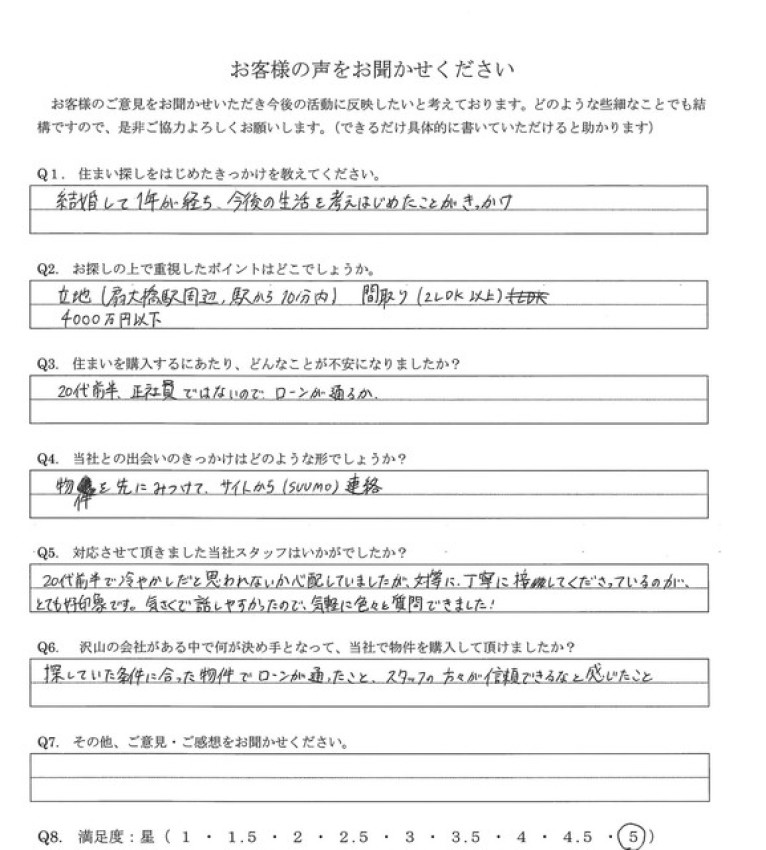 お客様の声をお聞かせください
お客様のご意見をお聞かせいただき今後の活動に反映したいと考えております。どのような些細なことでも結
構ですので、是非ご協力よろしくお願いします。（できるだけ具体的に書いていただけると助かります）
Q1. 住まい探しをはじめたきっかけを教えてください。
結婚して1年が経ち、今後の生活を考えはじめたことがきっかけ
Q2. お探しの上で重視したポイントはどこでしょうか。
立地（扇大橋駅周辺，駅から10分内） 間取り（2LDK以上）
4000万円以下
Q3. 住まいを購入するにあたり、どんなことが不安になりましたか？
20代前半、正社員ではないので ローンが通るか.
Q4. 当社との出会いのきっかけはどのような形でしょうか？
物件を先にみつけて、サイトから（SUUMO）連絡
Q5. 対応させて頂きました当社スタッフはいかがでしたか？
20代前半で冷やかしだと思われないか心配していましたが、対等に、丁寧に接してくださっているのが、
とても好印象です。気さくで話しやすかったので、気軽に色々と質問できました！
Q6. 沢山の会社がある中で何が決め手となって、当社で物件を購入して頂けましたか？
探していた条件に合った物件でローンが通ったこと、スタッフの方々が信頼できるなと感じたこと
Q7. その他、ご意見・ご感想をお聞かせください。
Q8. 満足度：星（ 1 ・ 1.5 ・ 2 ・ 2.5 ・ 3 ・ 3.5 ・ 4 ・ 4.5 ・ 5 ）